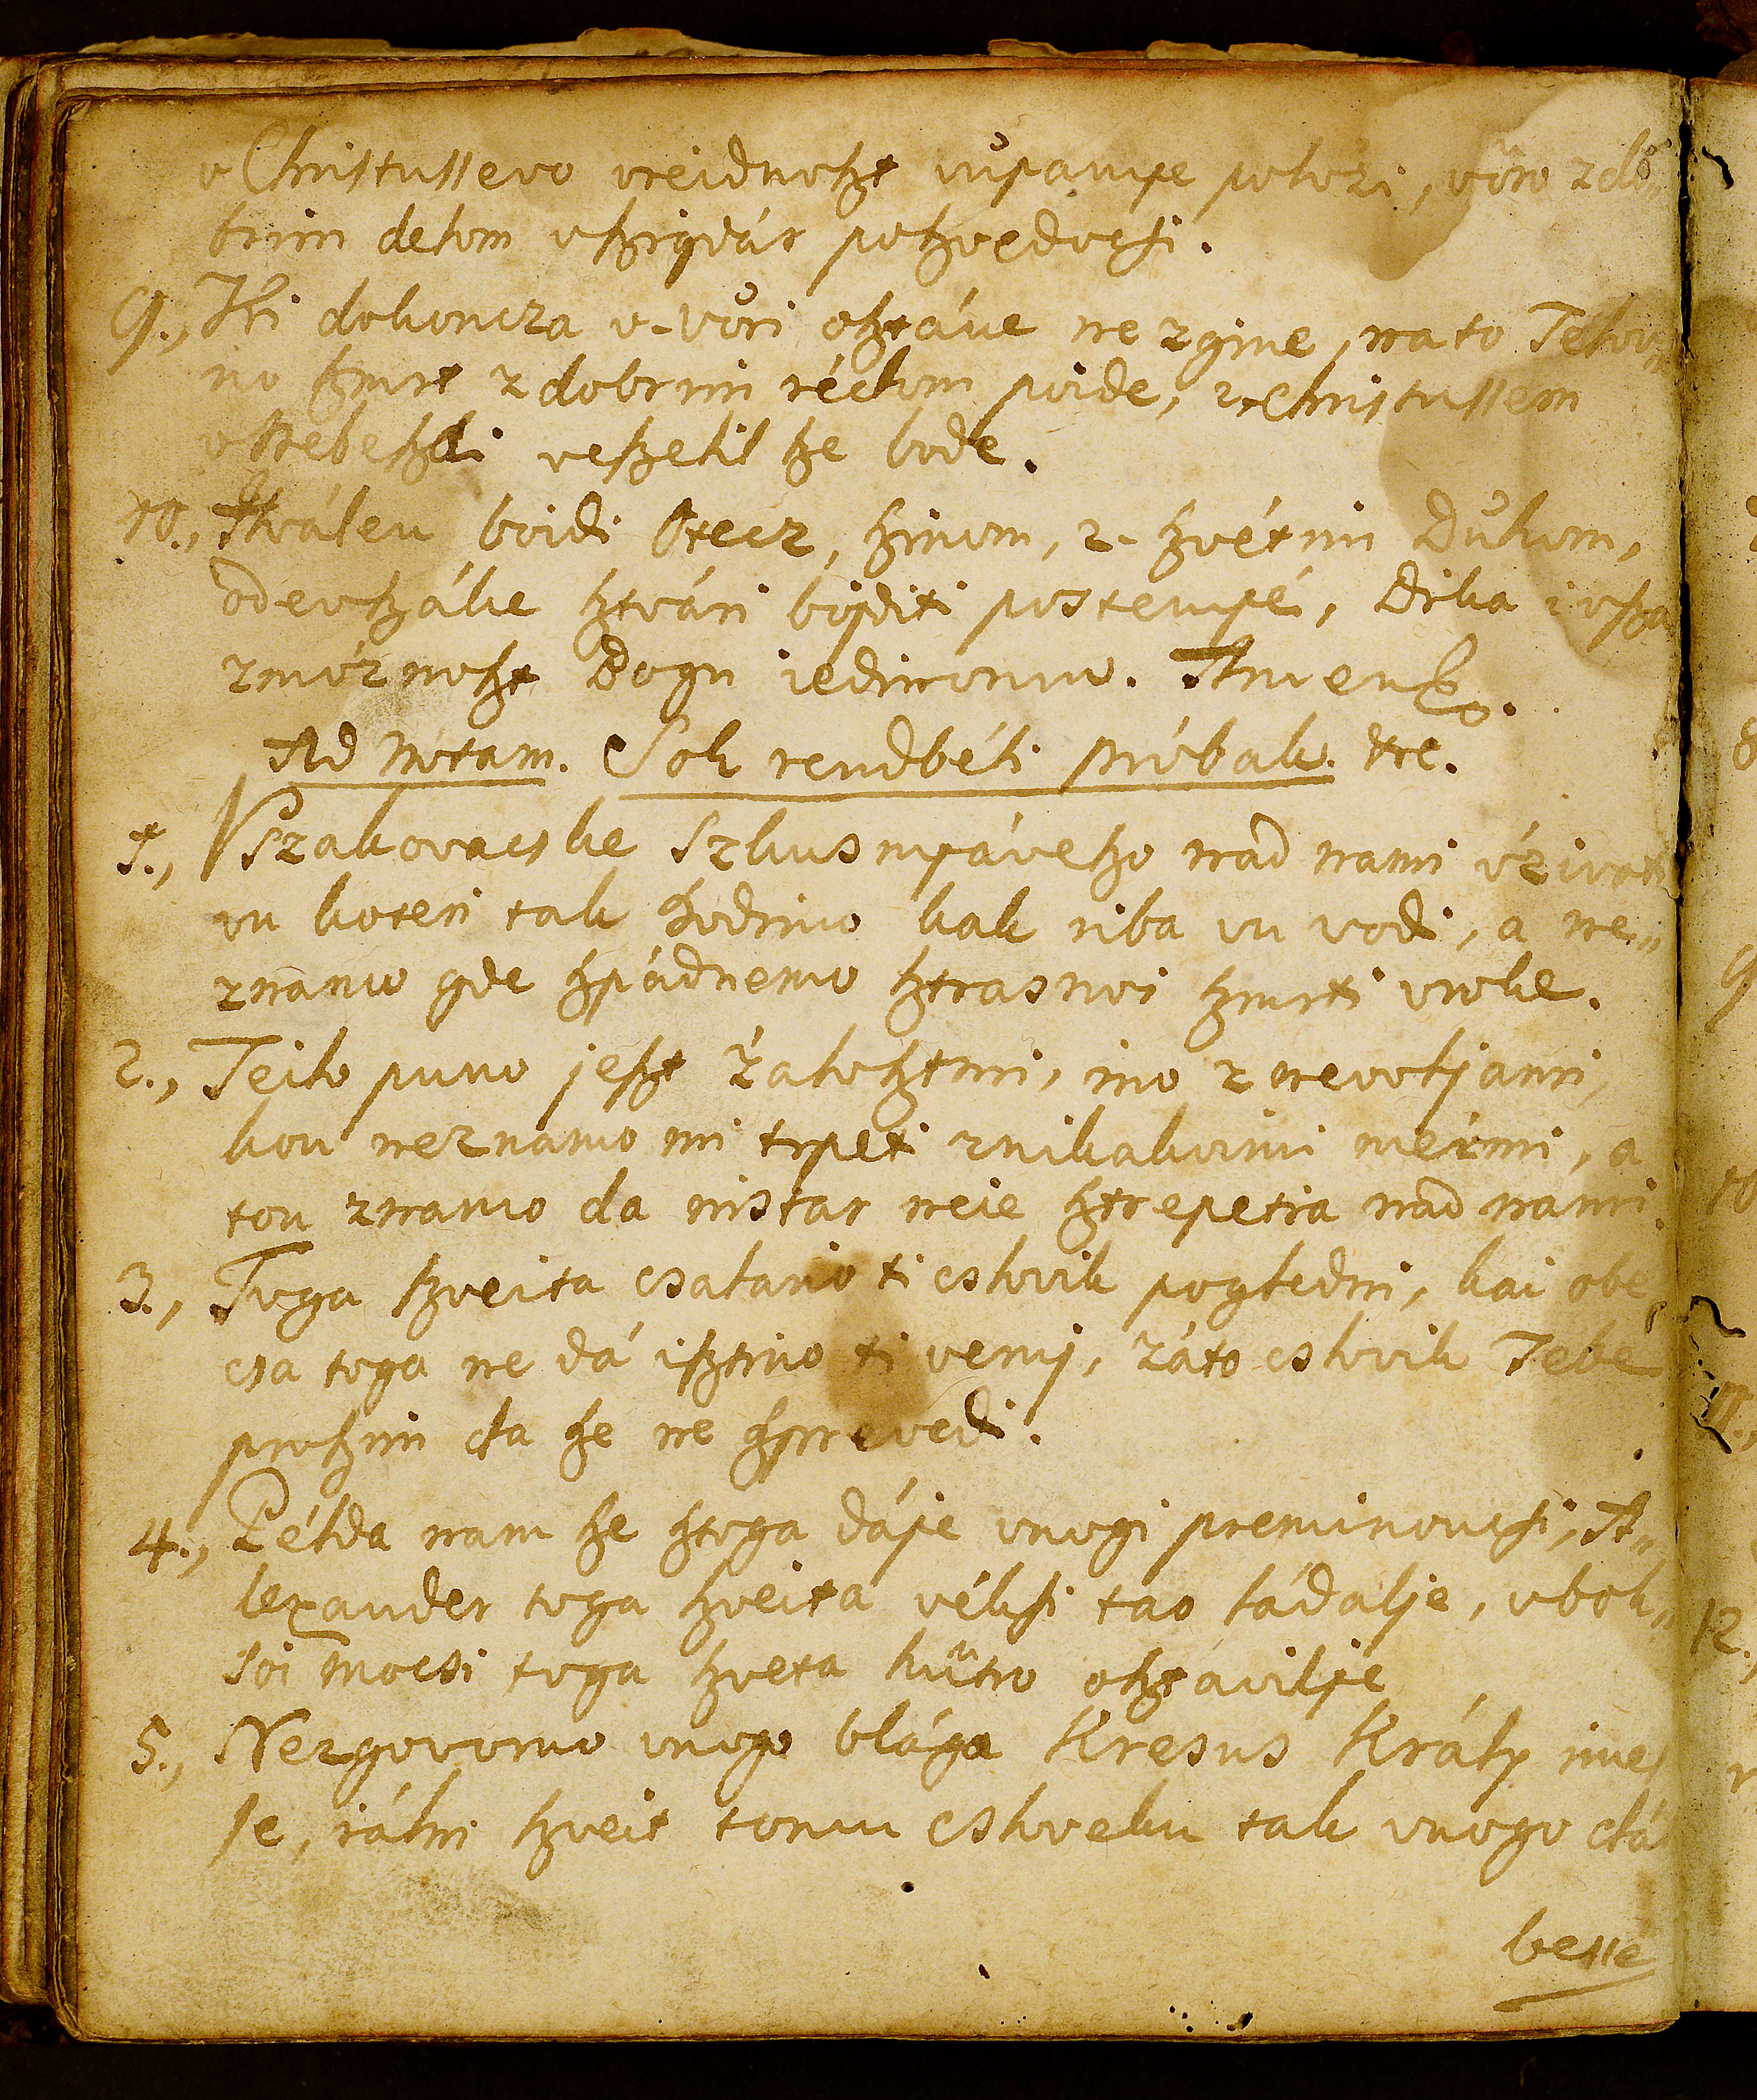 v Christussevo vreidnoszt vüpanye polo'zi, vöro zdo„
brim delom vszigdár poszvedocsi.
9., Ki dokoncza v-vöri osztáne ne zgine, na to Telov„
no szmrt z dobrim réckom poide, z Christussem
v Nebeszki veszelil sze bode.
10., Hválen boidi Otecz, szinom, z- szvétim Dühom,
odevszáke sztvári bojditi postenyé, Dika i vsza
zmó'znoszt Bogu iedinomu. Amen
Ad Notam. Sok rendbéli próbak. etc.
1., Vszakovacske szkusnyáveszo nad nami
vu koteri tak hodimo kak riba vu vodi, a ne„
znamo gde szpádnemo sztrasnoi szmrti vroke.
2., Teilo puno jeszt 'zalosztmi, ino z nevoljami,
kou neznamo mi trpeti znikakvimi mérmi, a
tou znamo da nistar neie sztrepetia nad nami.
3., Toga szveita csalario ti cslovik pogledni, kai obe„
csa toga ne dá isztino ti venij, záto cslovik Tebé
proszim da sze ne szprevedi.
4., Példa nam sze sztoga dáje vnogi preminoucsi, A„
lexander toga szveita véksi tao ládalje, vbol„
soi mocsi toga szveta hütro osztávilje
5., Nezgovorno vnogo blága Kresus Kráty ime„
se, iáki szveit tomu csloveku tak vnogo dá
besse